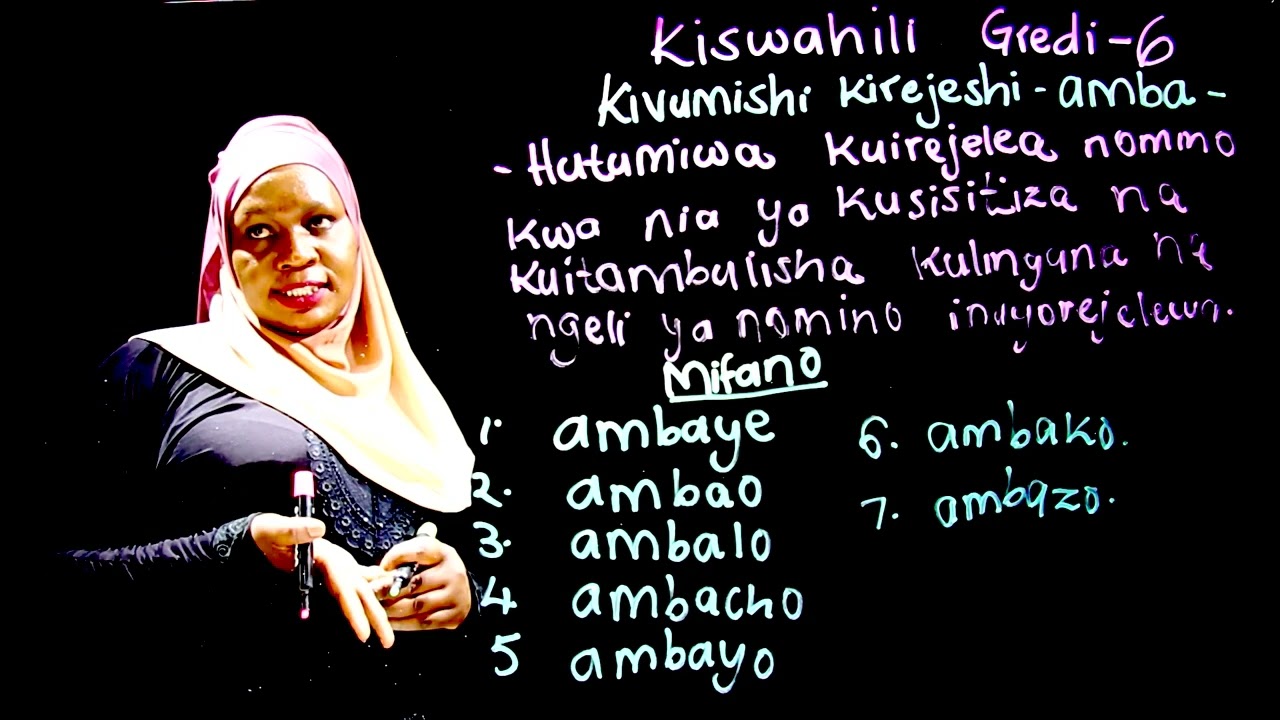 Kiswahili Gredi-6
Kivumishi kirejeshi - amba -
- Hutumiwa kuirejelea nomino
kwa nia ya kusisitiza na
kuitambulisha kulingana na
ngeli ya nomino inayorejelewa.
Mifano
1. ambaye
2. ambao
3. ambalo
4 ambacho
5 ambayo
6. ambako.
7. ambazo.